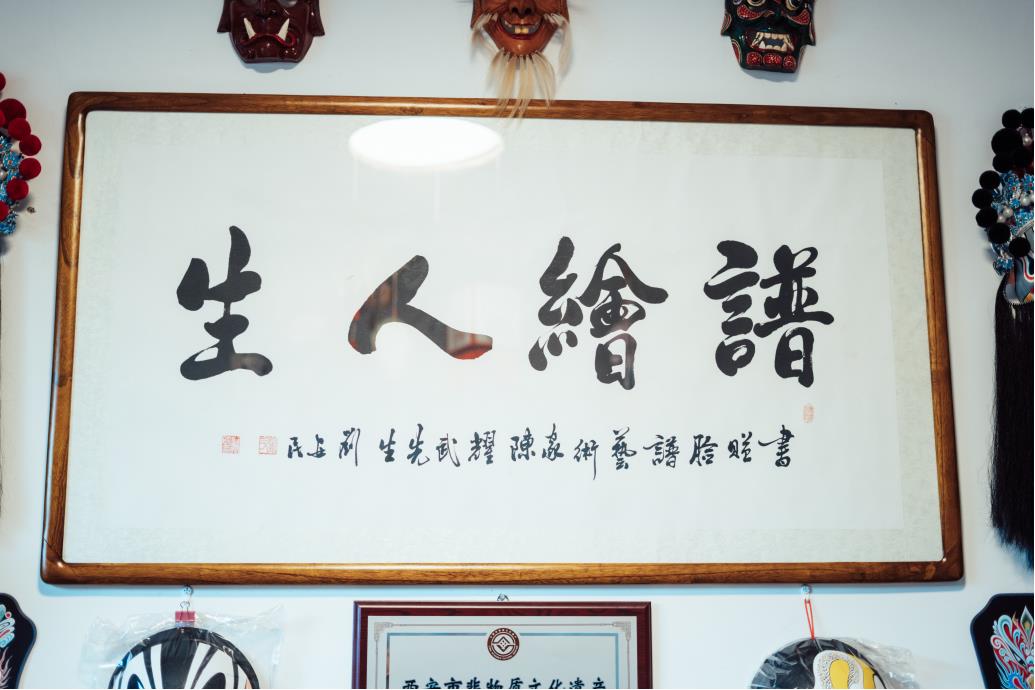 譜繪人生
書贈臉譜藝術家陳耀武先生劉占民
西安市非物质文化遗产